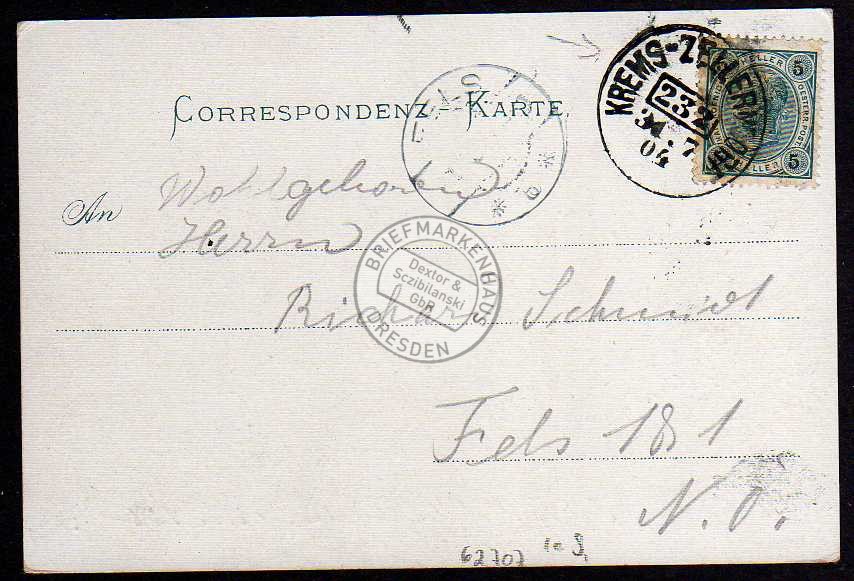 CORRESPONDENZ-KARTE.
KREMS-ZELLERNDORF
232
31. 7
04
5 HELLER
5
OESTERR. POST.
FELS
An Wohlgeboren
Herrn
Richard Schmidt
BRIEFMARKENHAUS
Dextor &
Sczibilanski
GbR
DRESDEN
Fels 181
N. Ö.
62707